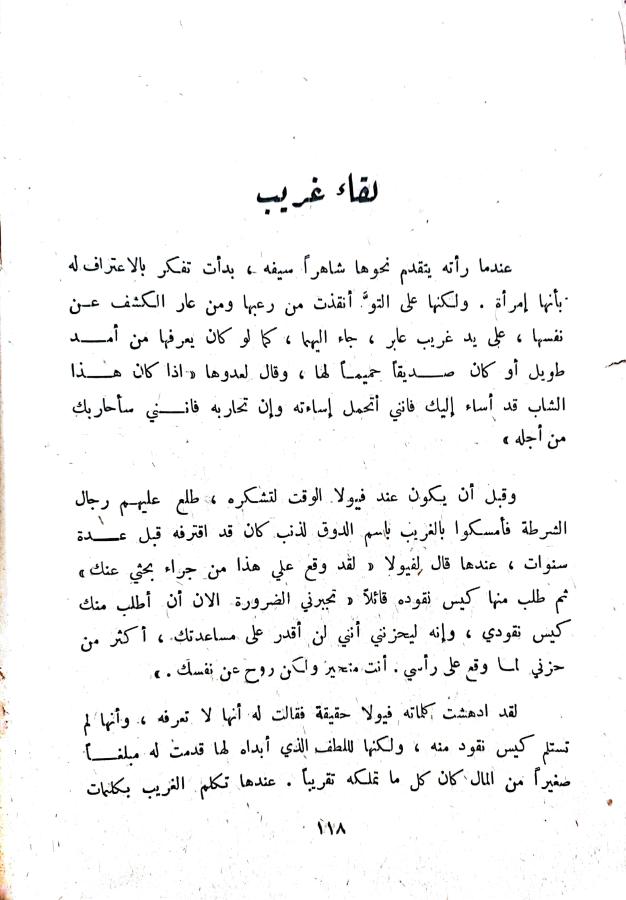 لقاء غريب
عندما رأته يتقدم نحوها شاهراً سيفه ، بدأت تفكر بالاعتراف له
بأنها إمرأة . ولكنها على التوِّ أنقذت من رعبها ومن عار الكشف عن
نفسها ، على يد غريب عابر ، جاء اليهما ، كما لو كان يعرفها من أمد
طويل أو كان صديقاً حميماً لها ، وقال لعدوها « اذا كان هذا
الشاب قد أساء إليك فانني أتحمل إساءته وإن تحاربه فانني سأحاربك
من أجله »
وقبل أن يكون عند فيولا الوقت لتشكره ، طلع عليهم رجال
الشرطة فأمسكوا بالغريب باسم الدوق لذنب كان قد اقترفه قبل عدة
سنوات ، عندها قال لفيولا « لقد وقع علي هذا من جراء بحثي عنك »
ثم طلب منها كيس نقوده قائلاً « تجبرني الضرورة الان أن أطلب منك
كيس نقودي ، وإنه ليحزنني أنني لن أقدر على مساعدتك ، أكثر من
حزني لما وقع على رأسي . أنت متحير ولكن روح عن نفسك . »
لقد ادهشت كلماته فيولا حقيقة فقالت له أنها لا تعرفه ، وأنها لم
تستلم كيس نقود منه ، ولكنها لللطف الذي أبداه لها قدمت له مبلغاً
صغيراً من المال كان كل ما تملكه تقريباً . عندها تكلم الغريب بكلمات
١١٨